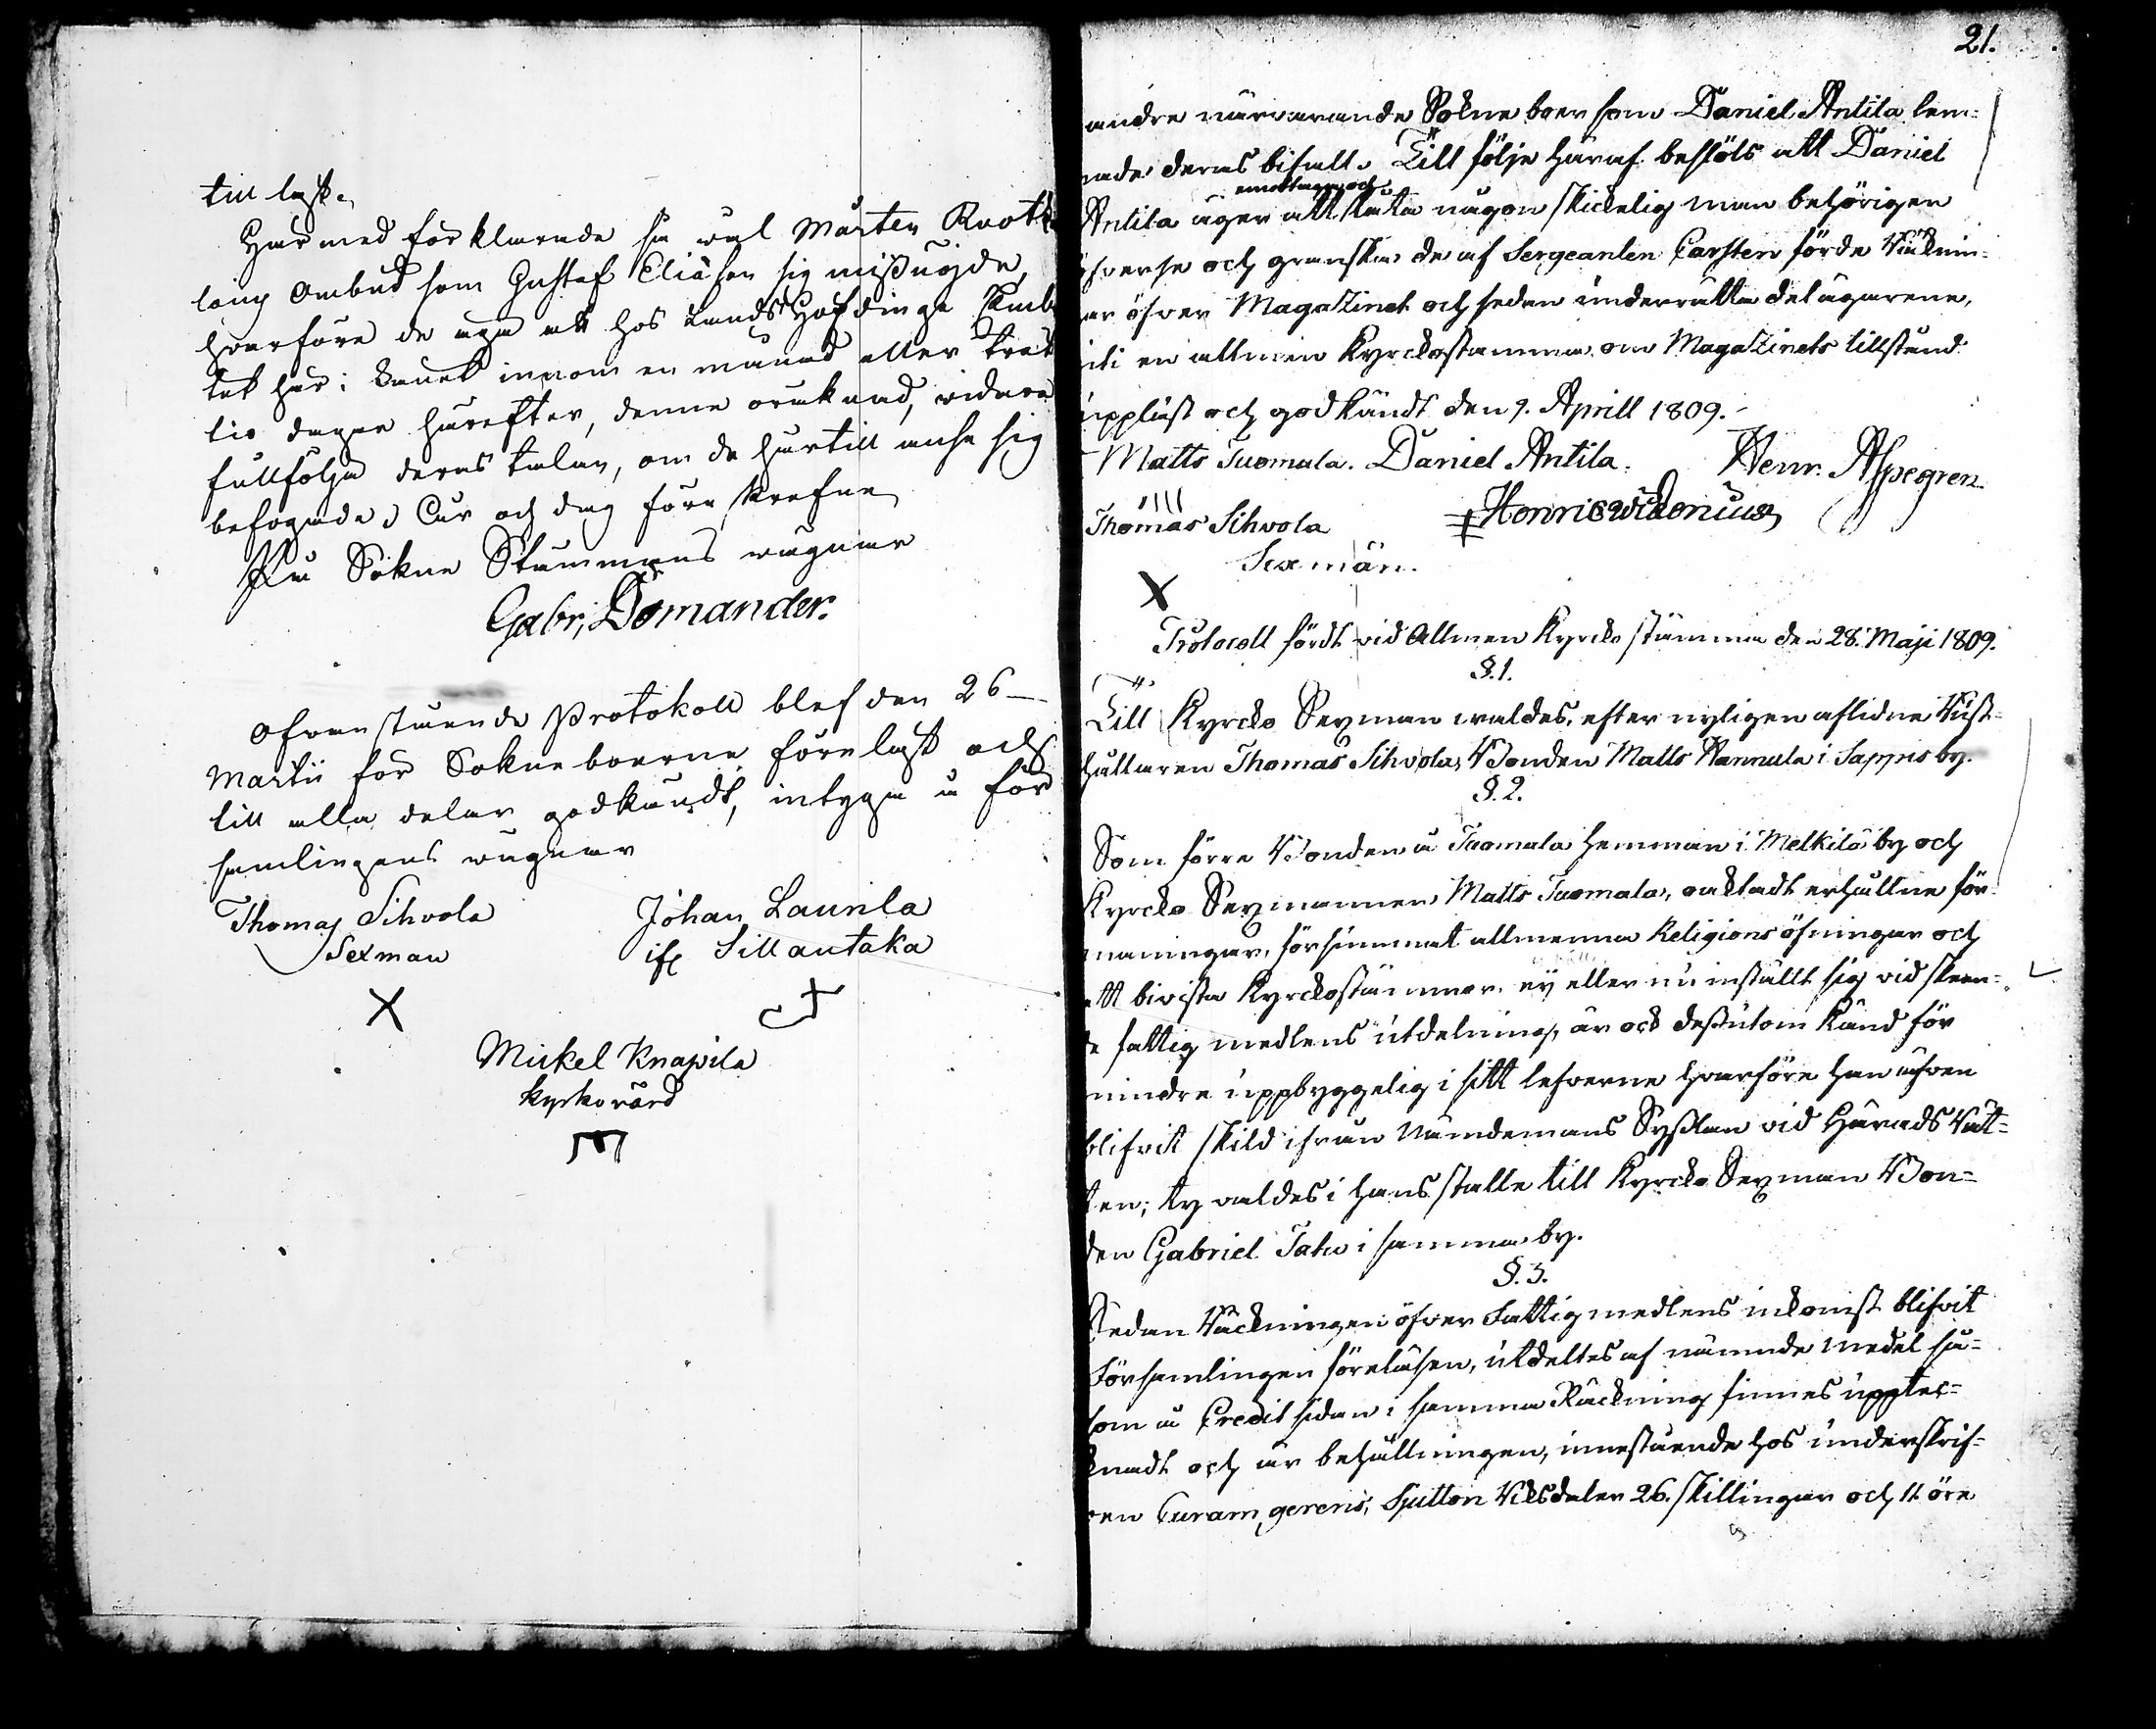 till lagt.
Här med förklarade så väl Mårten Knot
läiny Ombud som Gustaf Eliæson sig missnögde,
hvarföre de äga att hos Lands Höfdinge Embe
tet här i Länet innom en månad eller tret
tio dagar härefter, denne oräknad, vidare
fullfölja deras talan, om de härtill anse sig
befogade, Åhr och dag förr skrefne
På Sokne Stämmans wägnar
Gabr. Dömander.
Ofvan stående Protokoll blef den 26
Martii för Sokneboerne förelagt och
till alla delar godkändt, intyga å för
samlingens wägnar
Thomas Sihvola
Sexman
Johan Launila
if Sillantaka
X
Mickel Knapila
kyrkovärd
21.
andre närvarande Sokne boer som Daniel Antila lem=
nade deras bifall. Till följe häraf beslöts att Daniel
emottaga och
Antila äger att låta någon skickelig man behörigen
öfverse och granska de af Sergeanten Carsten förde Räknin=
ar öfver Magazinet och sedan underrätta delägarene,
uti en allmen Kyrckostämma om Magazinets tillstånd
uppläst och godkändt den 9. Aprill 1809.
Matts Tuomala. Daniel Antila. Henr. Aspegren.
Thomas Sihvola Henric Widenius
Sexmän.
X
Protocoll fördt vid Allmen Kyrcko stämma den 28. Maji 1809.
§. 1.
Till Kyrcko Sexman valdes, efter nyligen aflidne Rust=
hållaren Thomas Sihvola, Bonden Matts Hannula i Sappis by.
§. 2.
Som förre Bonden å Tuomala hemman i Melkilä by och
Kyrcko Sexmannen Matts Tuomala, oacktadt erhållne för=
maningar, försummat allmenna Religions öfningar och
att bivista Kyrckostämmor, ej eller nu inställt sig vid skeen=
de fattig medlens utdelning, är ock dessutom känd för
mindre uppbyggelig i sitt lefverne hvarföre han äfven
blifvit skild ifrån Nämdemans Sysslan vid Härads Rät=
ten; ty valdes i hans ställe till Kyrcko Sexman Bon=
den Gabriel Tatu i samma by.
§. 3.
Sedan Räckningen öfver Fattigmedlens inkomst blifvit
Församlingen föreläsen, utdeltes af nämnde medel så=
som å Credit sidan i samma Räckning finnes uppteck=
knadt och är behållningen, innestående hos underskrif=
ven Curam gerens, Sjutton Riksdaler 26. skillingar och 11 öre